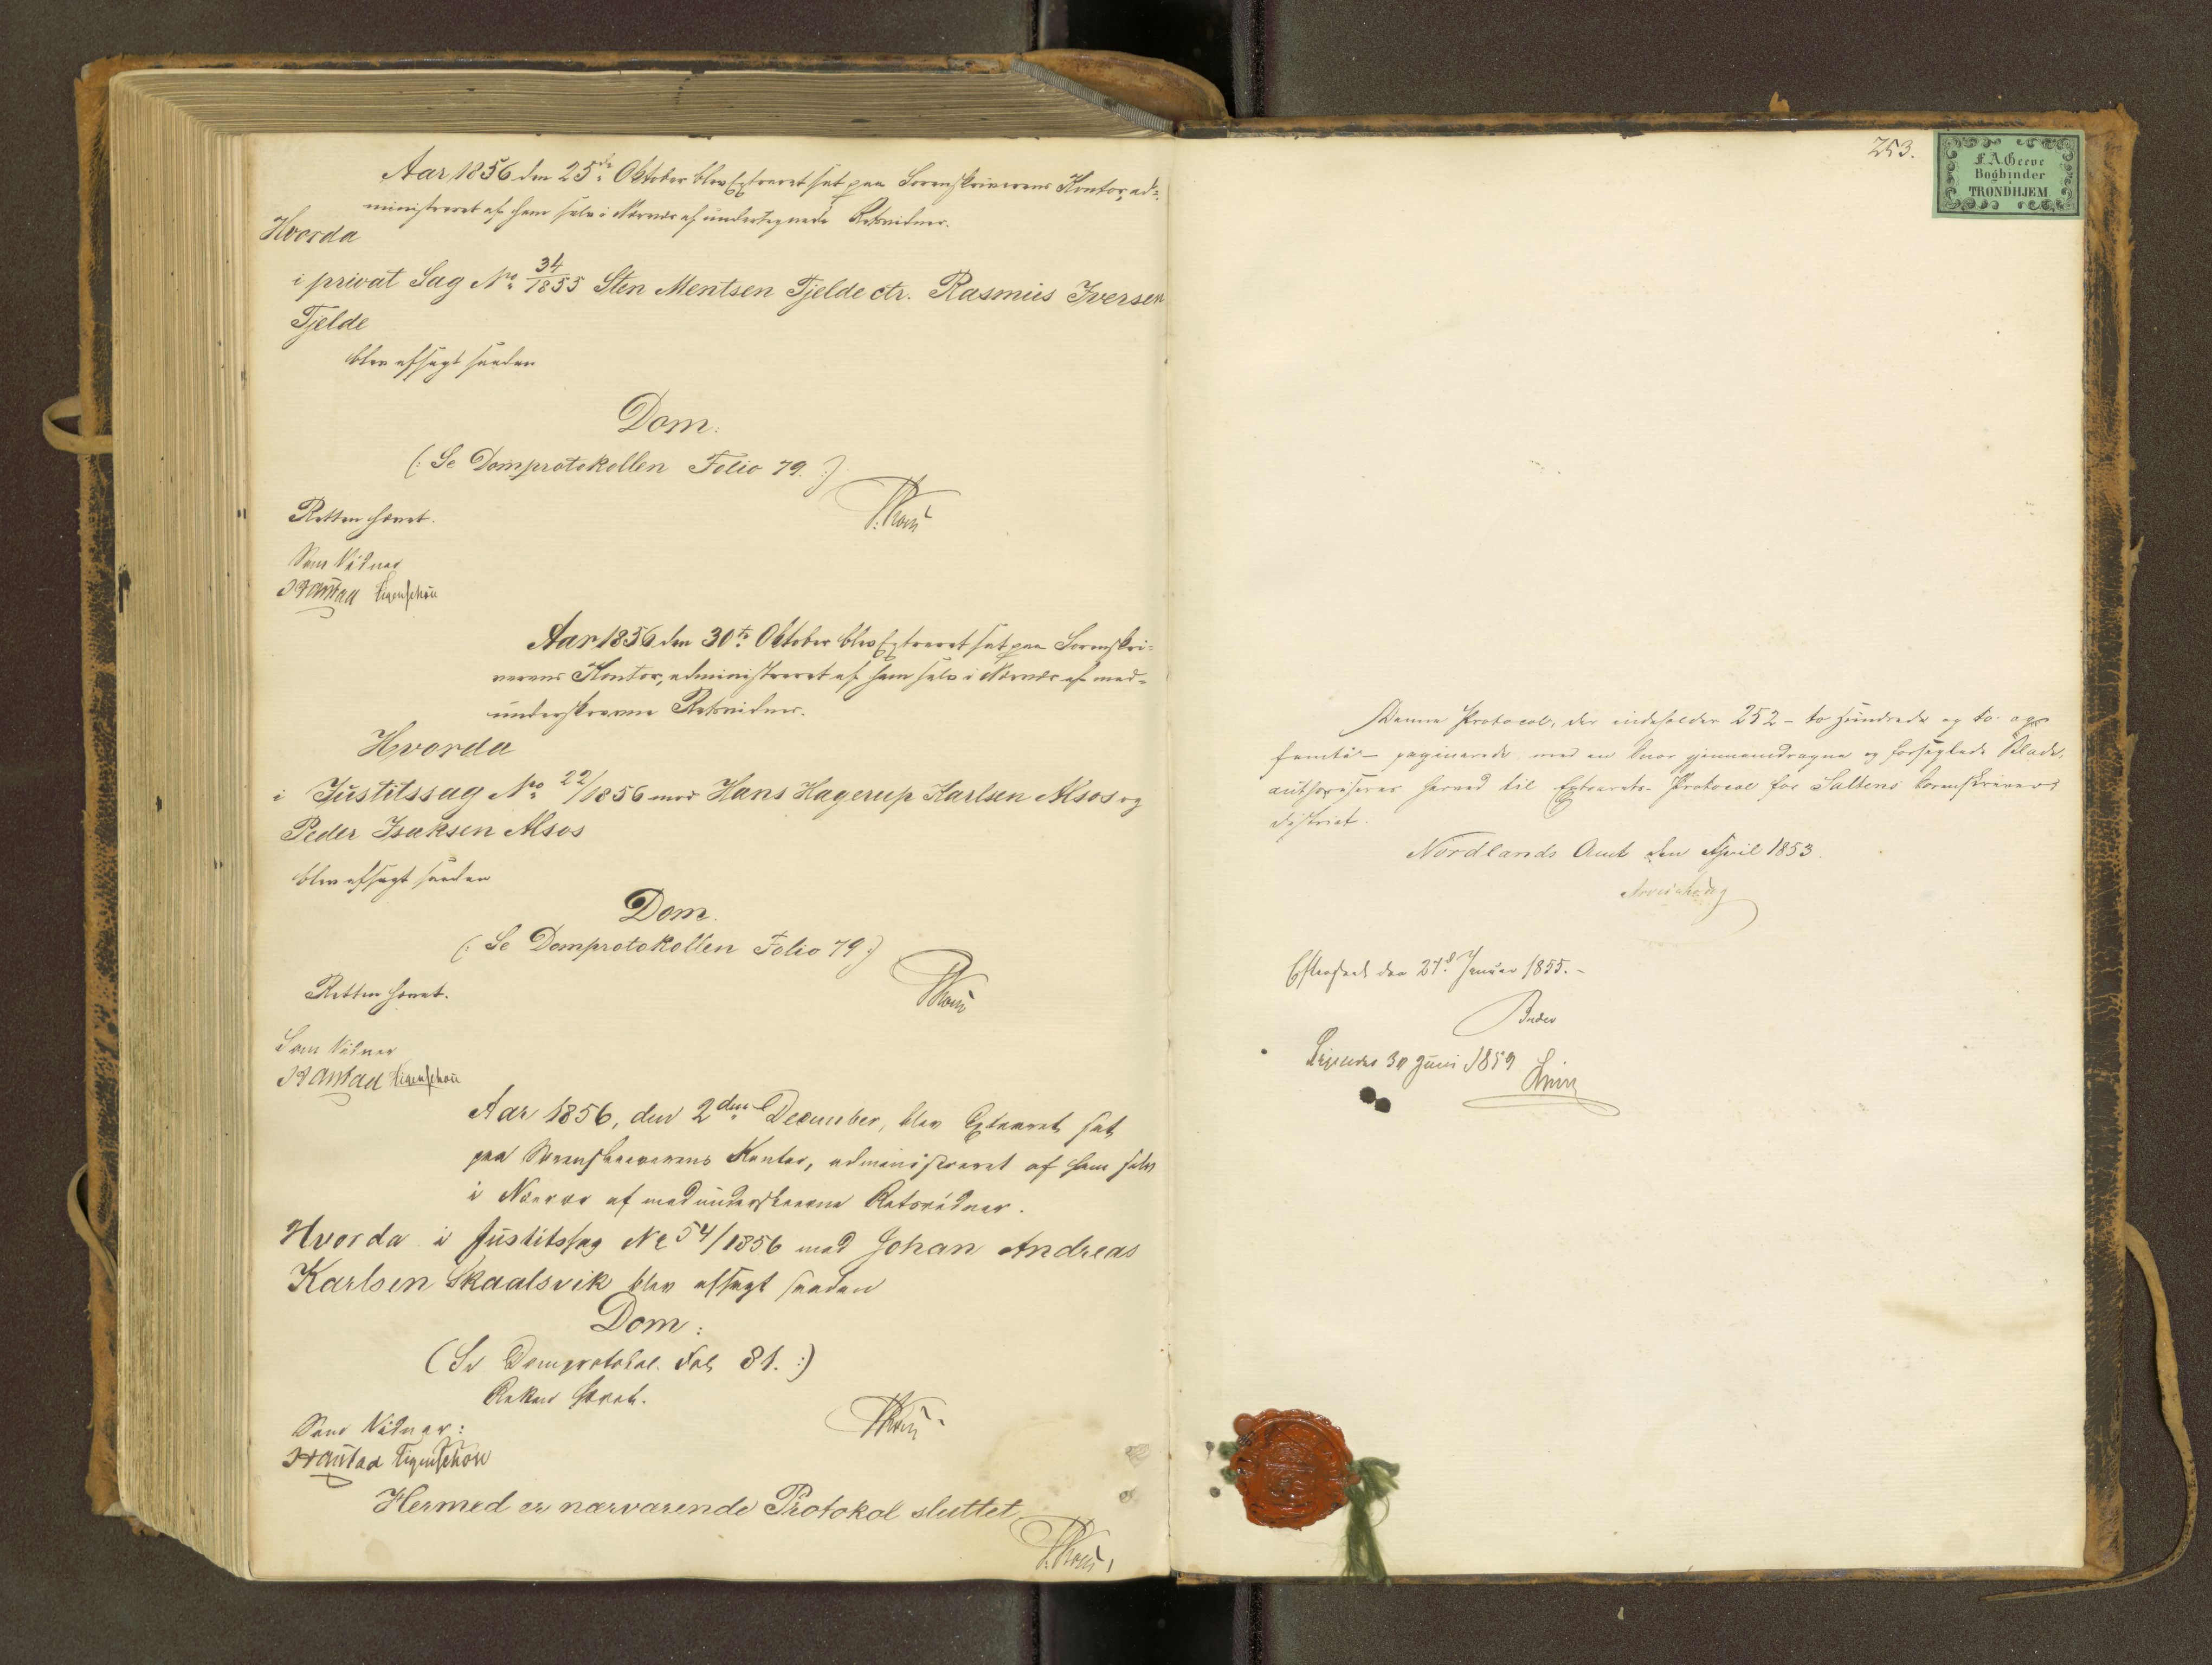 Aar 1856 den 25de Oktober blev Extraret sat paa Sorenskriverens Kontor, ad-
ministreret af ham selv i Nærvær af undertegnede Retsvidner.
Hvorda
i privat Sag No 34/1855 Sten Mentsen Fjelde ctr. Rasmus Iversen
Fjelde
blev afsagt saadan
Dom:
(: Se Domprotokollen Folio 79. :)
Retten hævet.
Som Vidner
Aar 1856 den 30te Oktober blev Extraret sat paa Sorenskri-
verens Kontor, administreret af ham selv i Nærvær af med-
underskrevne Retsvidner.
Hvorda
i Justitssag No 22/1856 mod Hans Hagerup Karlsen Alsos og
Peder Isaksen Alsos
blev afsagt saadan
Dom.
(: Se Domprotokollen Folio 79 :)
Retten hævet.
Som Vidner
Aar 1856, den 2den December, blev Extraret sat
paa Sorenskriverens Kontor, administreret af ham selv
i Nærvær af medunderskrevne Retsvidner.
Hvorda i Justitssag No 54/1856 mod Johan Andreas
Karlsen Skaalsvik blev afsagt saadan
Dom:
(Se Domprotokol. Fol. 81. :)
Retten hævet.
Som Vidner:
Hermed er nærværende Protokol sluttet.
253.
F. A. Geeve
Bogbinder
TRONDHJEM
Denne Protocol, der indeholder 252 - to hundrede og to og
femti - paginerede med en Snor gjennemdragne og forseglede Blade,
authoriseres herved til Extrarets-Protocol for Saltens Sorenskriver-
district.
Nordlands Amt den April 1853.
Efterseet den 27de Januar 1855. -
30 Juni 1859